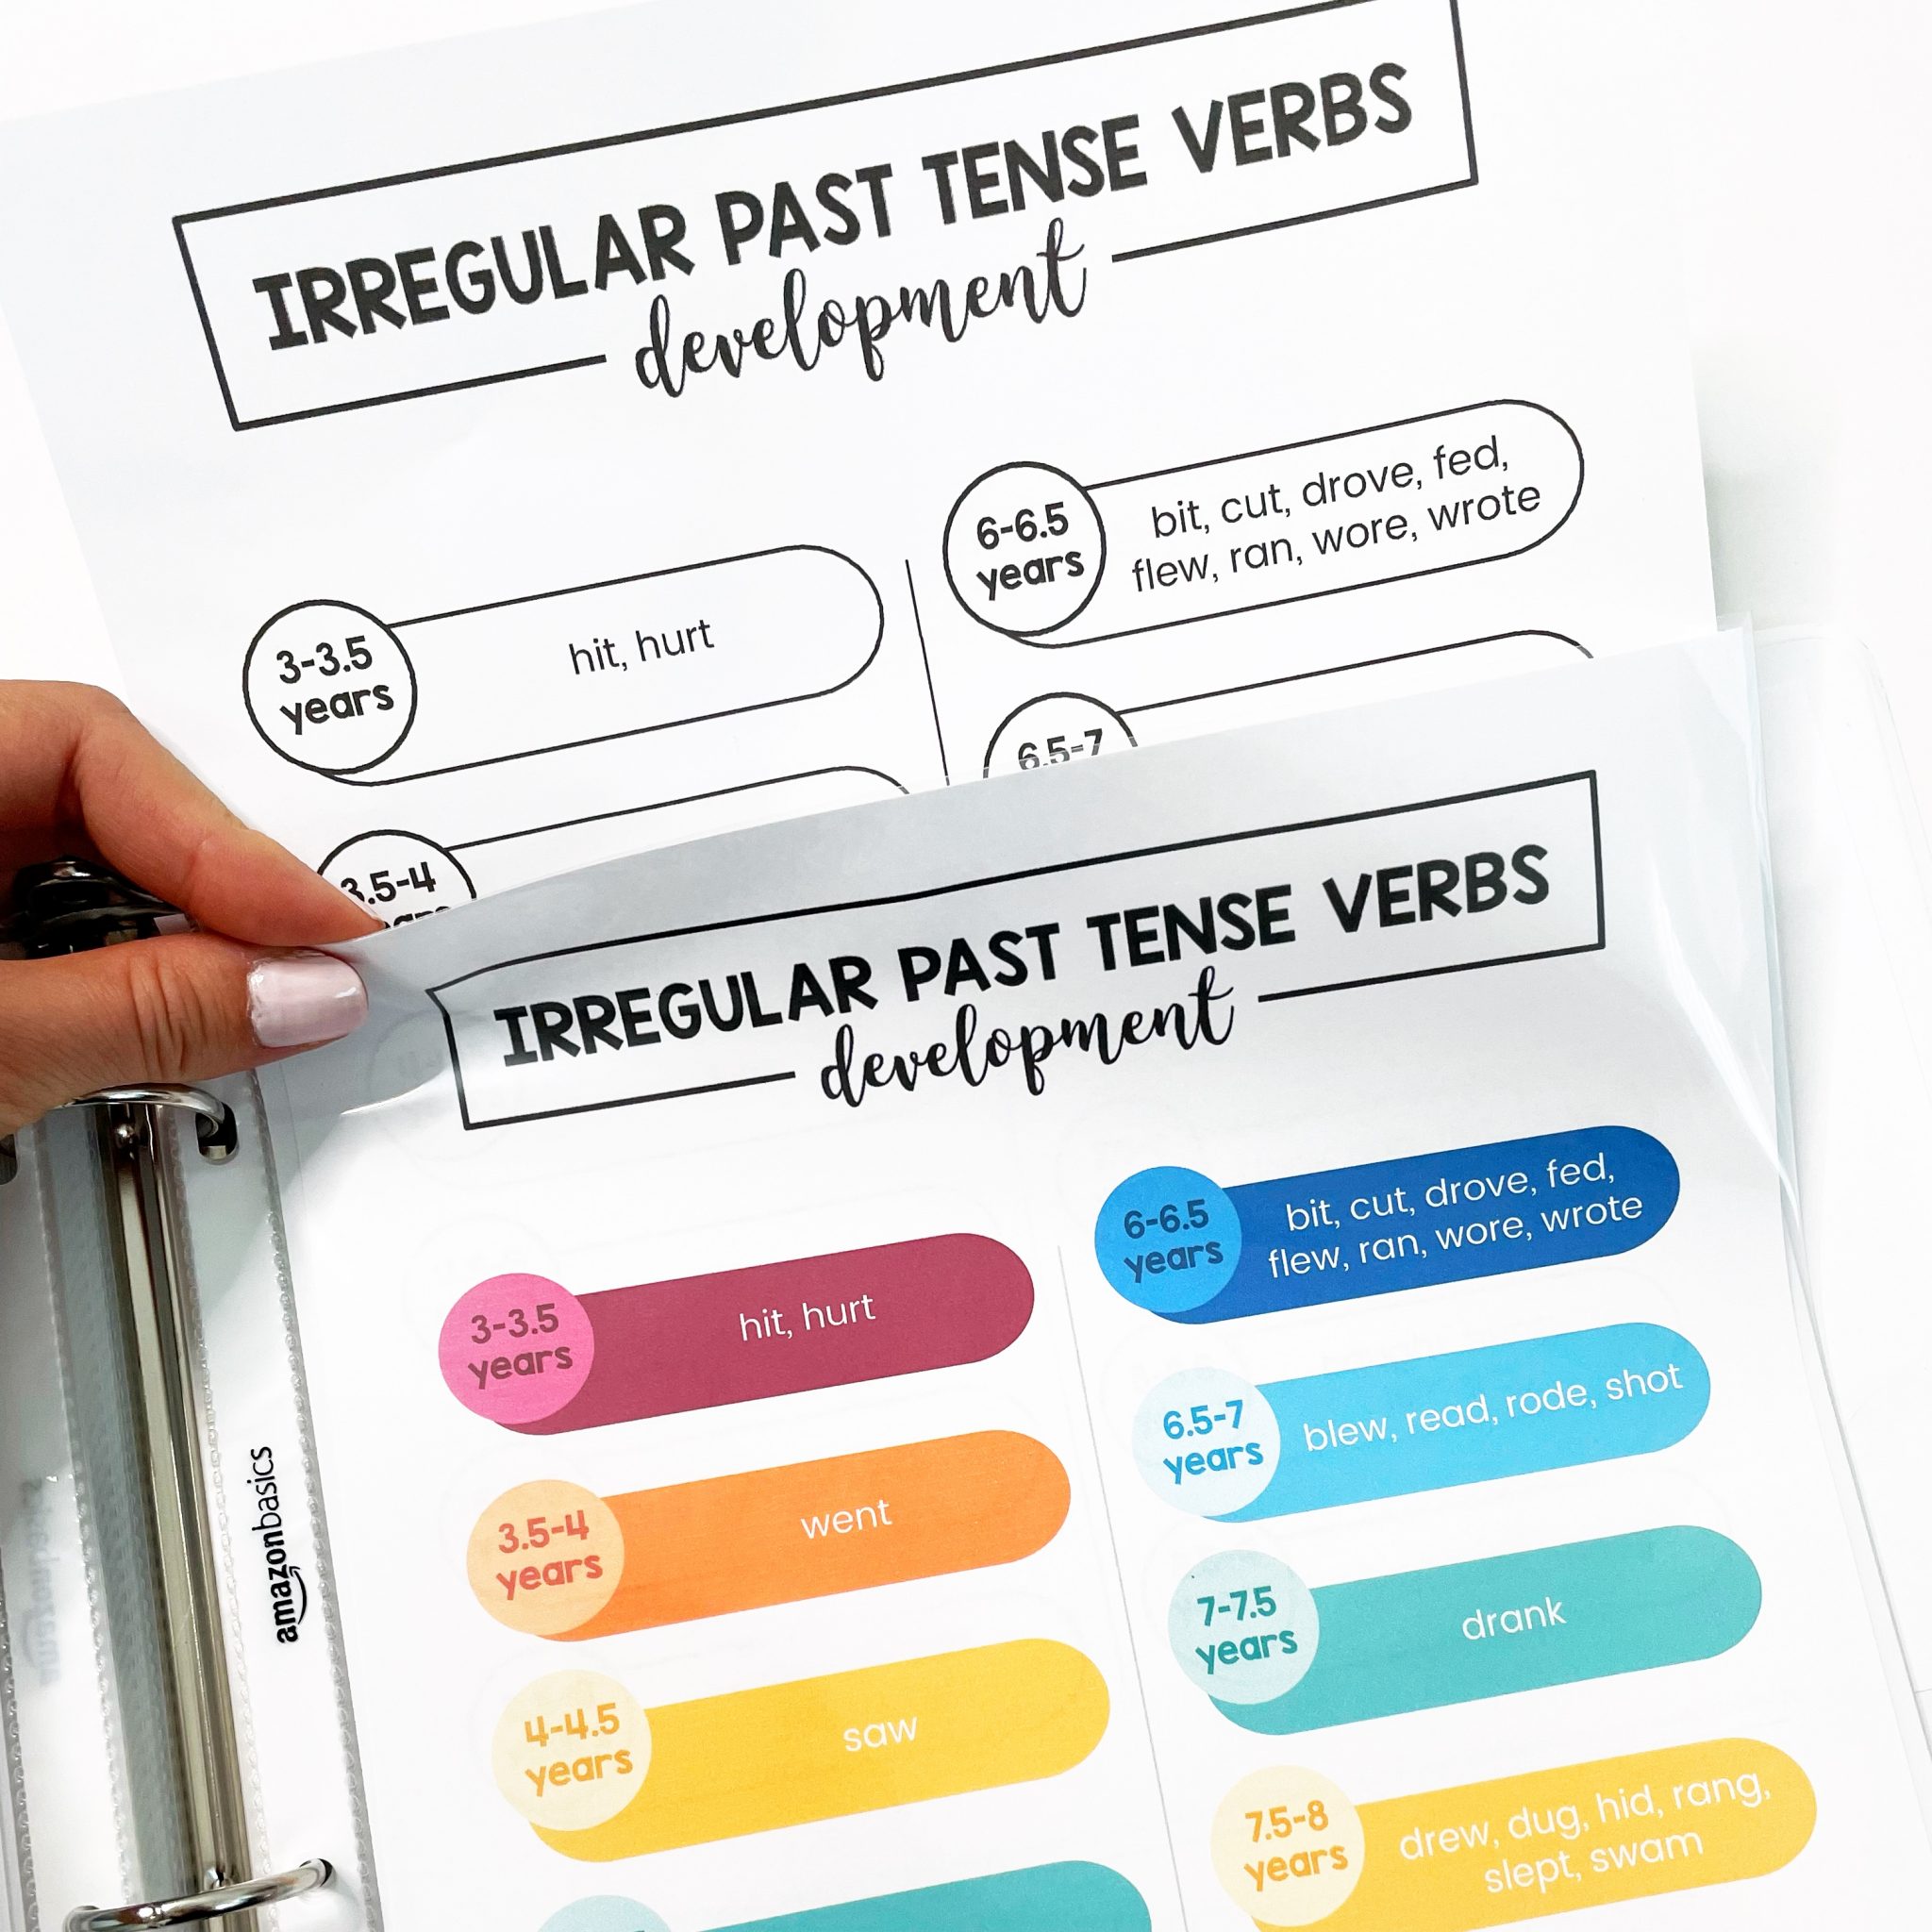 IRREGULAR PAST TENSE VERBS
development
3-3.5
years
hit, hurt
6-6.5
years
bit, cut, drove, fed,
flew, ran, wore, wrote
3.5-4
6.5-7
IRREGULAR PAST TENSE VERBS
development
3-3.5
years
hit, hurt
3.5-4
years
went
4-4.5
years
saw
6-6.5
years
bit, cut, drove, fed,
flew, ran, wore, wrote
6.5-7
years
blew, read, rode, shot
7-7.5
years
drank
7.5-8
years
drew, dug, hid, rang,
slept, swam
amazonbasics